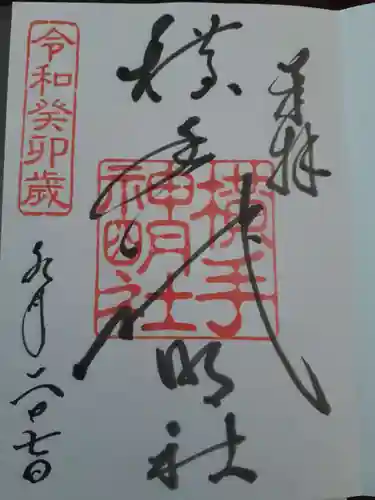 奉拝
横手神明社
横手
神明社
令和癸卯歳
九月二十七日